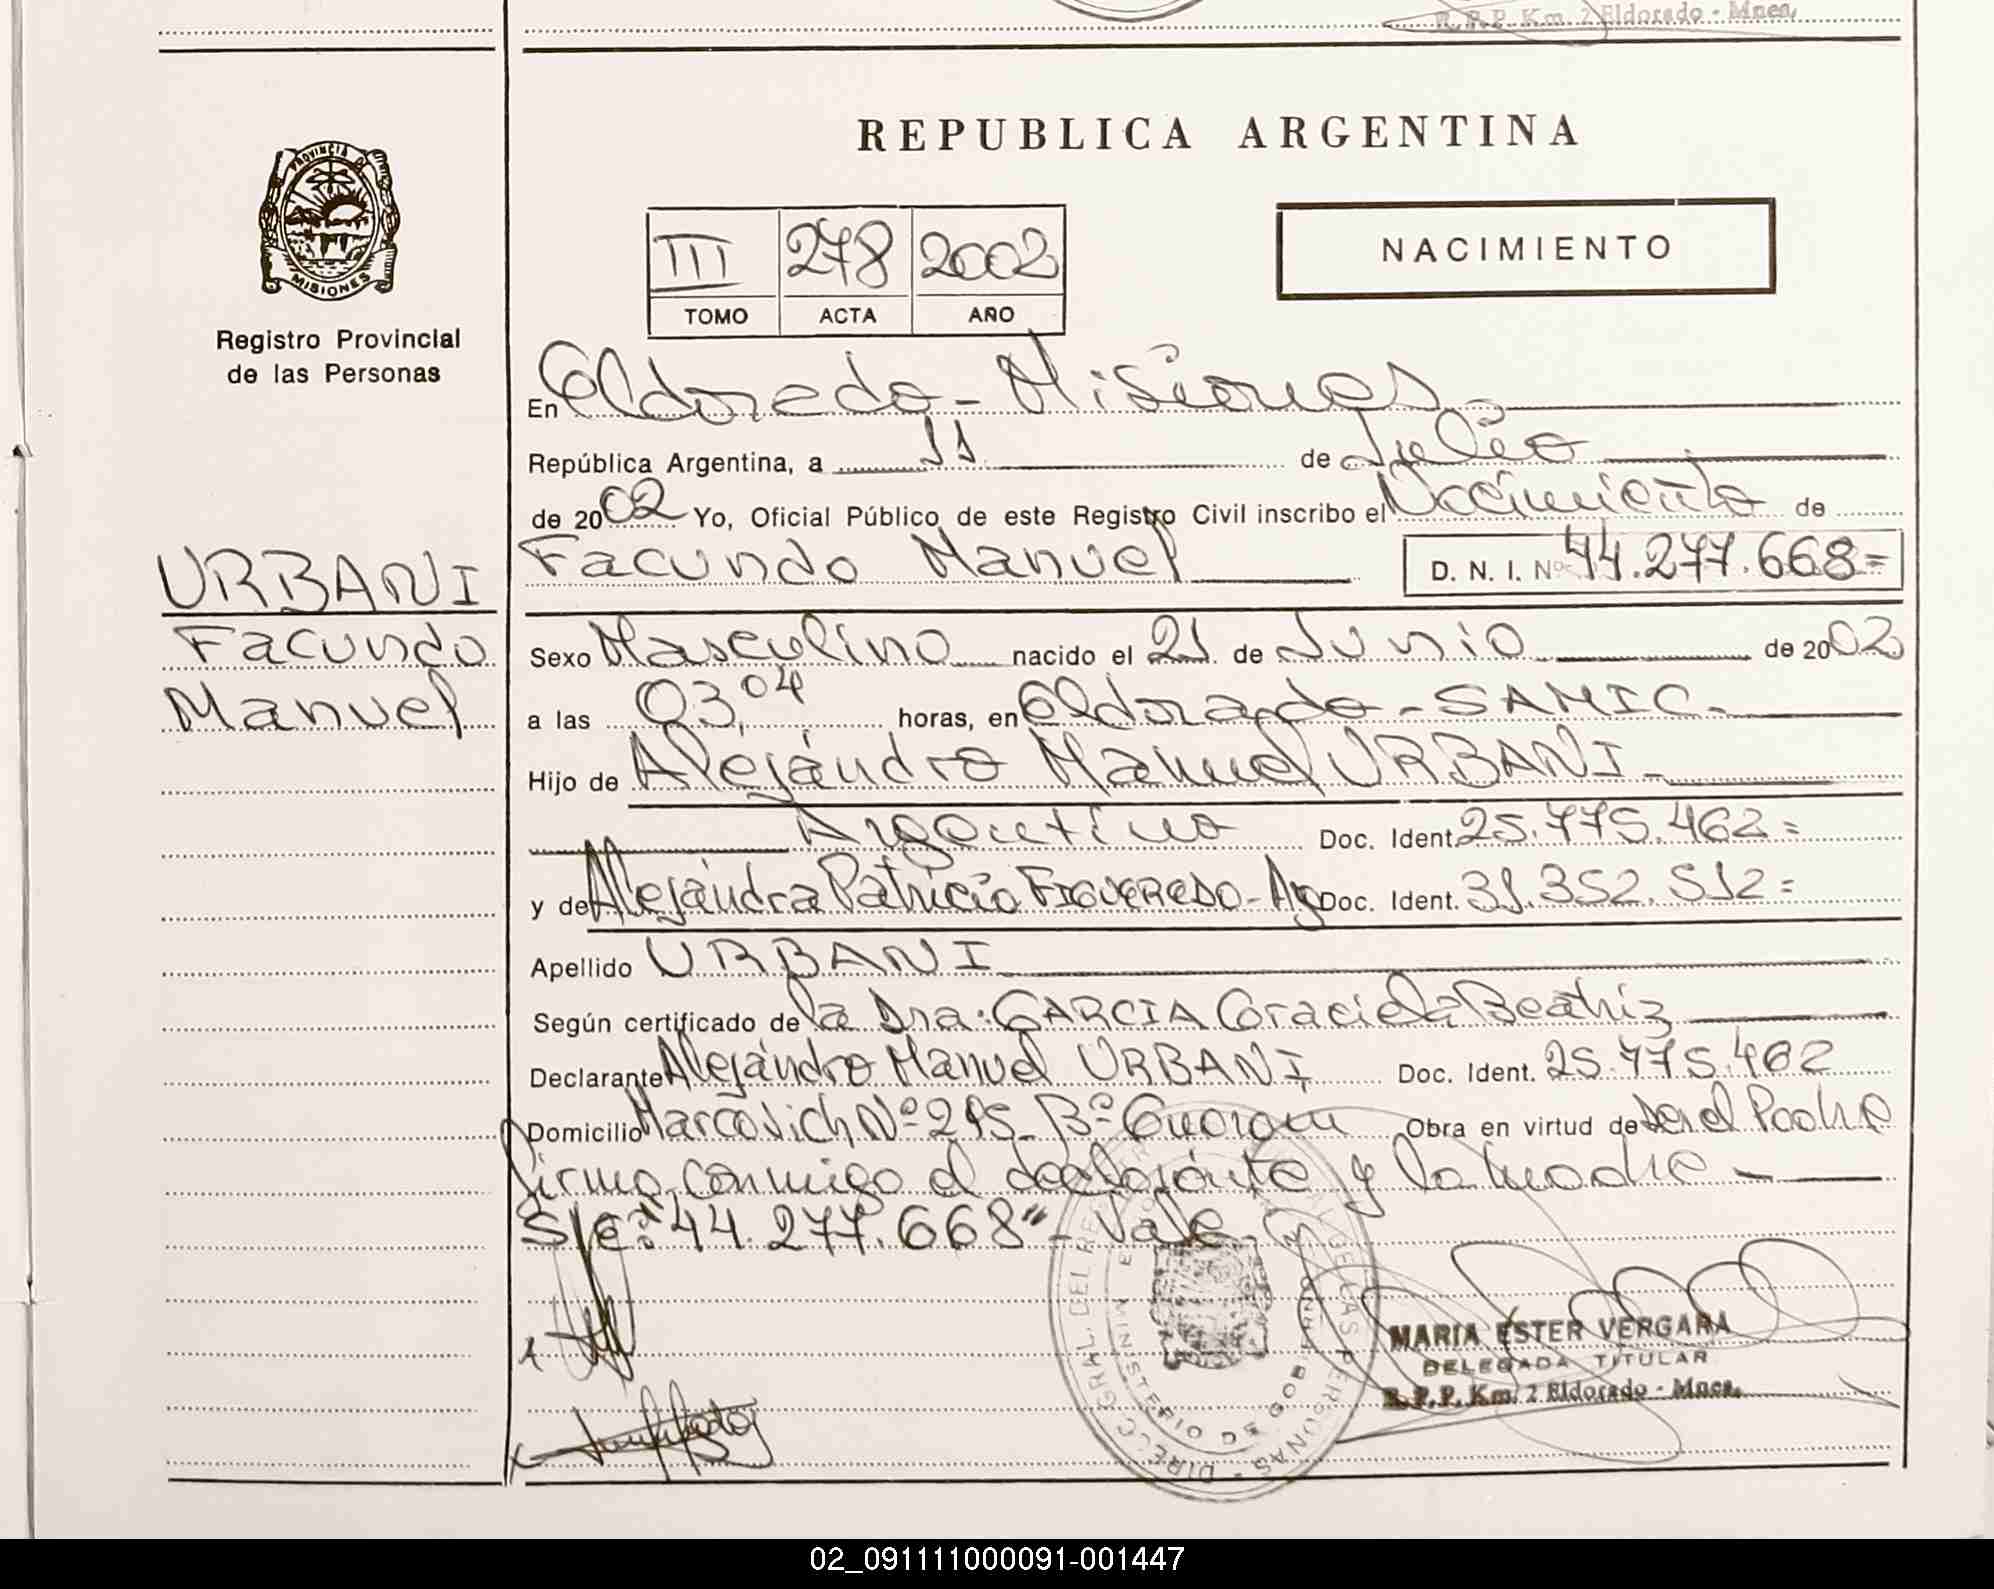 R.P.P. Km. 2 Eldorado - Mnes.
REPUBLICA ARGENTINA
PROVINCIA D
MISIONES
Registro Provincial
de las Personas
III 278 2002
TOMO ACTA AÑO
NACIMIENTO
En Eldorado - Misiones.
República Argentina, a 11 de Julio
de 2002 Yo, Oficial Público de este Registro Civil inscribo el Nacimiento de
Facundo Manuel D. N. I. Nº 44.277.668=
URBANI
Facundo
Manuel
Sexo Masculino nacido el 21 de Junio de 2002
a las 03,04 horas, en Eldorado - SAMIC.
Hijo de Alejandro Manuel URBANI
Argentino Doc. Ident. 25.775.462=
y de Alejandra Patricia FIGUEREDO - Arg Doc. Ident. 31.352.512=
Apellido URBANI
Según certificado de la Dra. GARCIA Graciela Beatriz
Declarante Alejandro Manuel URBANI Doc. Ident. 25.775.462
Domicilio Marcovich Nº 295 - Bº Guarani Obra en virtud de ser el Padre
firma conmigo el declarante y la madre -
S/e: "44.277.668" - Vale.
MARIA ESTER VERGARA
DELEGADA TITULAR
R.P.P. Km. 2 Eldorado - Mnes.
02_091111000091-001447